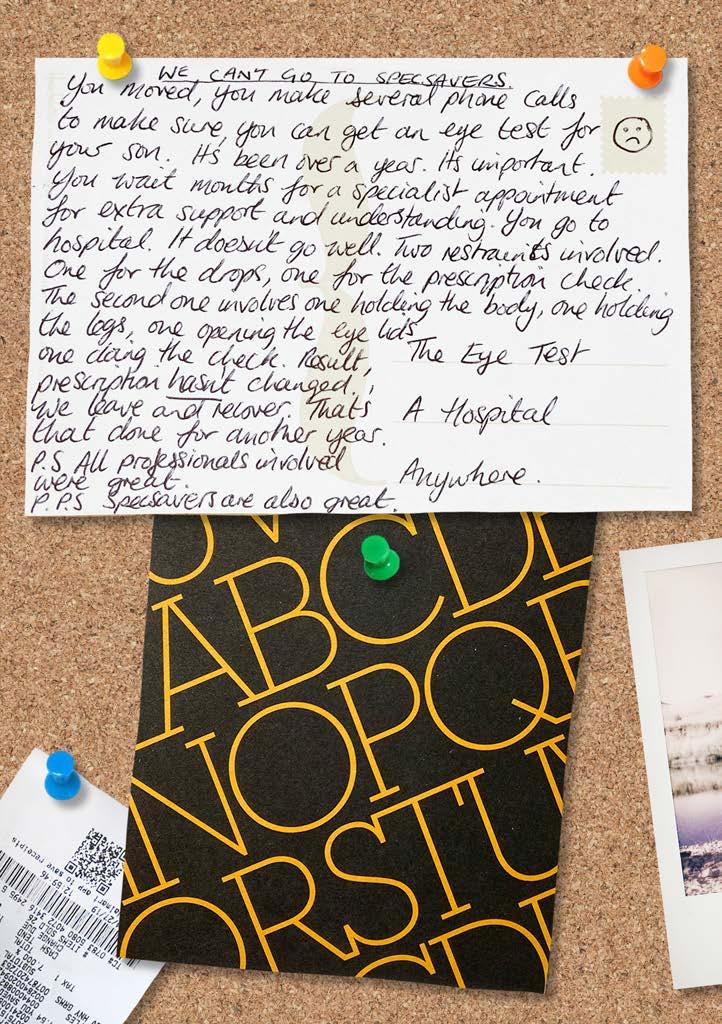 WE CAN'T GO TO SPECSAVERS.
You moved, you make several phone calls
to make sure, you can get an eye test for
your son. It's been over a year. Its important.
You wait months for a specialist appointment
for extra support and understanding. You go to
hospital. It doesn't go well. Two restraints involved.
One for the drops, one for the prescription check.
The second one involves one holding the body, one holding
the legs, one opening the eye lids
one doing the check. Result,
prescription hasn't changed.
We leave and recover. That's
that done for another year.
P.S All professionals involved
were great.
P.P.S Specsavers are also great.
The Eye Test
A Hospital
Anywhere.
ABCDE
NOPQR
QRSTU
CDE
app to save receipts
12 59 46
TC# 0783 8080 4072 3416 2495 6
# ITEMS SOLD
CHANGE DUE
CASH
TOTAL
TAX 1
SUBTOTAL